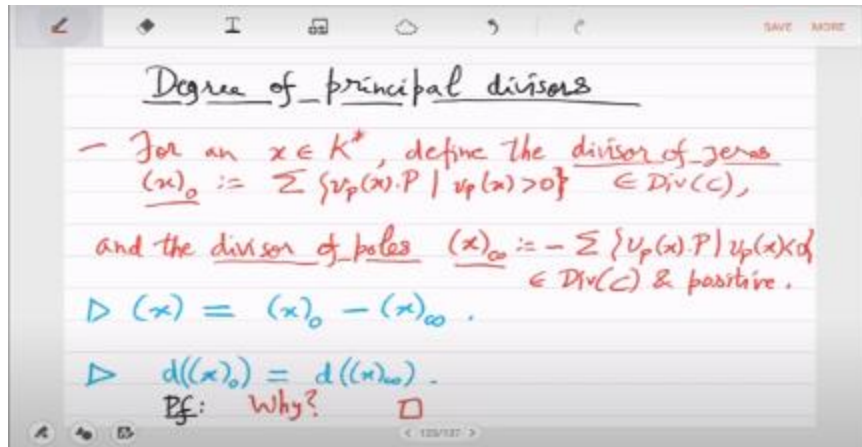 SAVE MORE
Degree of principal divisors
- For an x ∈ K*, define the divisor of zeros
(x)₀ := Σ {v_P(x).P | v_P(x) > 0} ∈ Div(C),
and the divisor of poles (x)_∞ := - Σ {v_P(x).P | v_P(x)<0}
∈ Div(C) & positive.
▷ (x) = (x)₀ - (x)_∞ .
▷ d((x)₀) = d((x)_∞) .
Pf: Why? □